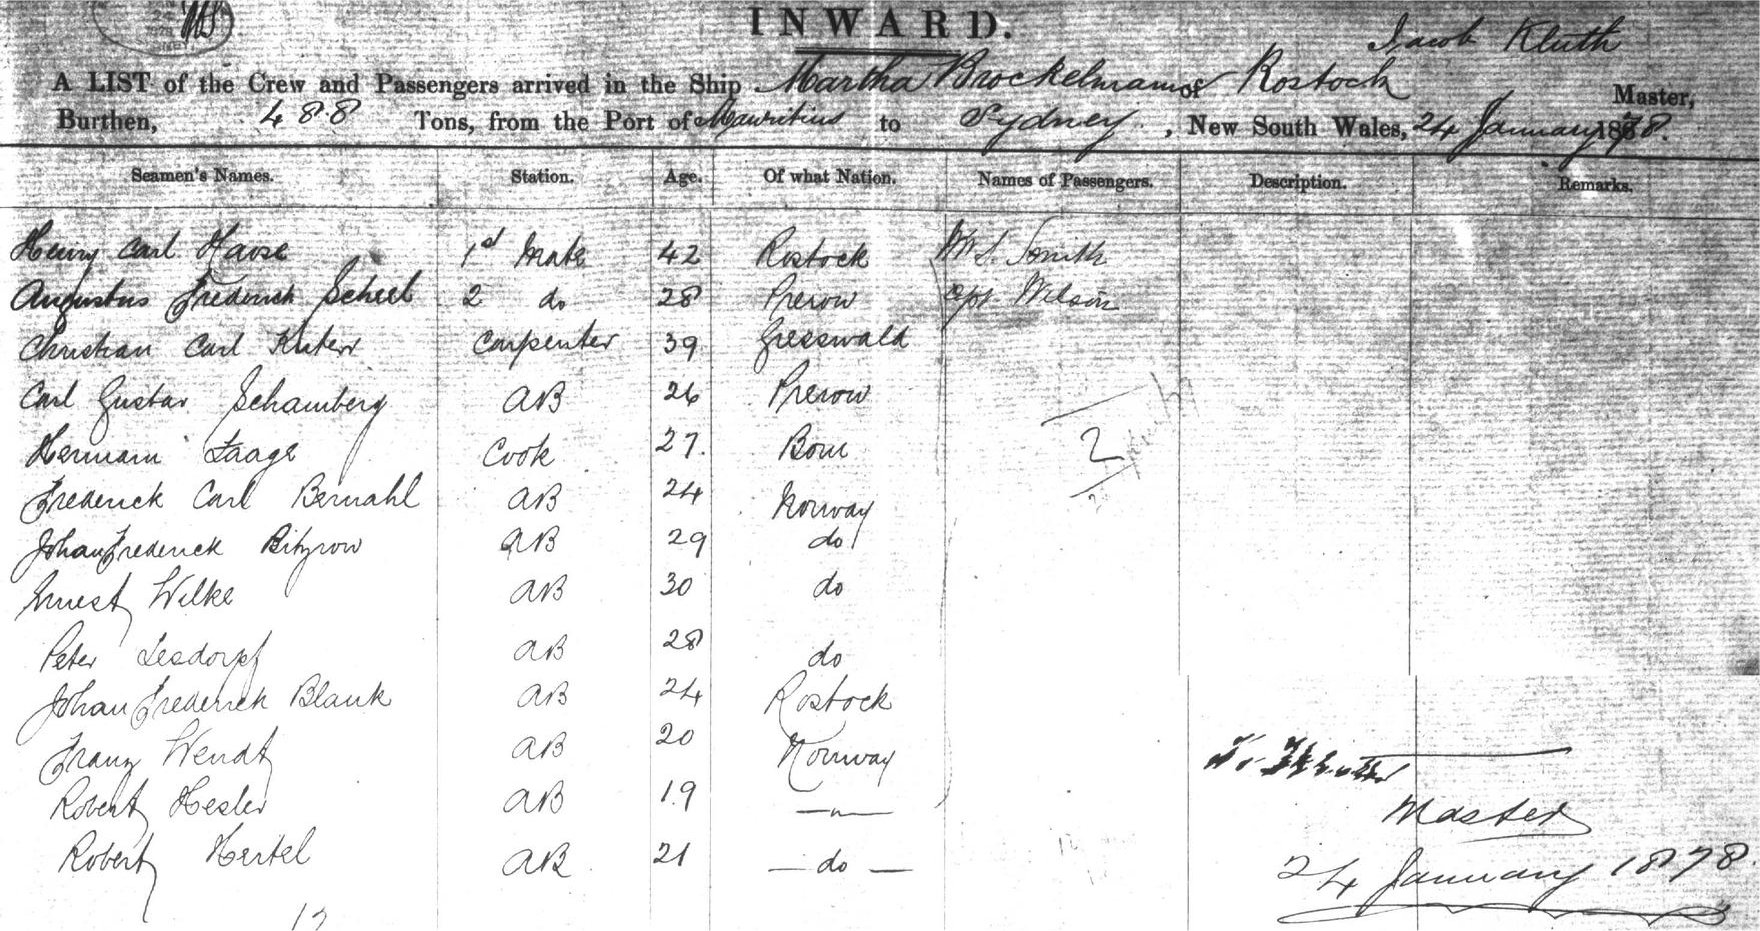 INWARD.
Jacob Kluth
A LIST of the Crew and Passengers arrived in the Ship Martha Brockelmann of Rostock Master,
Burthen, 488 Tons, from the Port of Mauritius to Sydney, New South Wales, 24 January 1878.
Seamen's Names. Station. Age. Of what Nation. Names of Passengers. Description. Remarks.
Henry Carl Haase 1st Mate 42 Rostock Smith
Augustus Frederick Scheel 2 do 28 Prerow Capt Wilson
Christian Carl Carpenter 39 Gresswald
Carl Gustav Schamberg AB 26 Prerow
2
Hermann Faage Cook 27. Born
Frederick Carl Bernahl AB 24 Norway
Johan Frederick Bitzrow AB 29 do
Ernest Wilke AB 30 do
Peter Lesdorpf AB 28 do
Johan Frederick Blank AB 24 Rostock
Franz Wendt AB 20 Norway
Robert Hesler AB 19 — " —
Robert Hertel AB 21 — do —
Master
24 January 1878